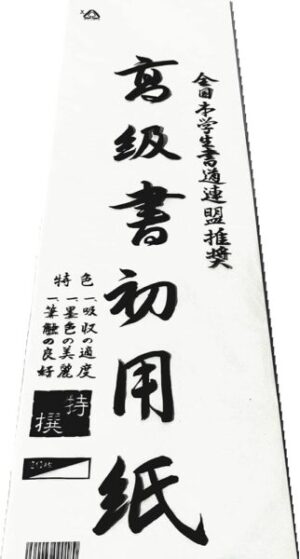 全日本学生書道連盟推奨
高級書初用紙
特色
一、吸収の適度
一、墨色の美麗
一、筆触の良好
特撰